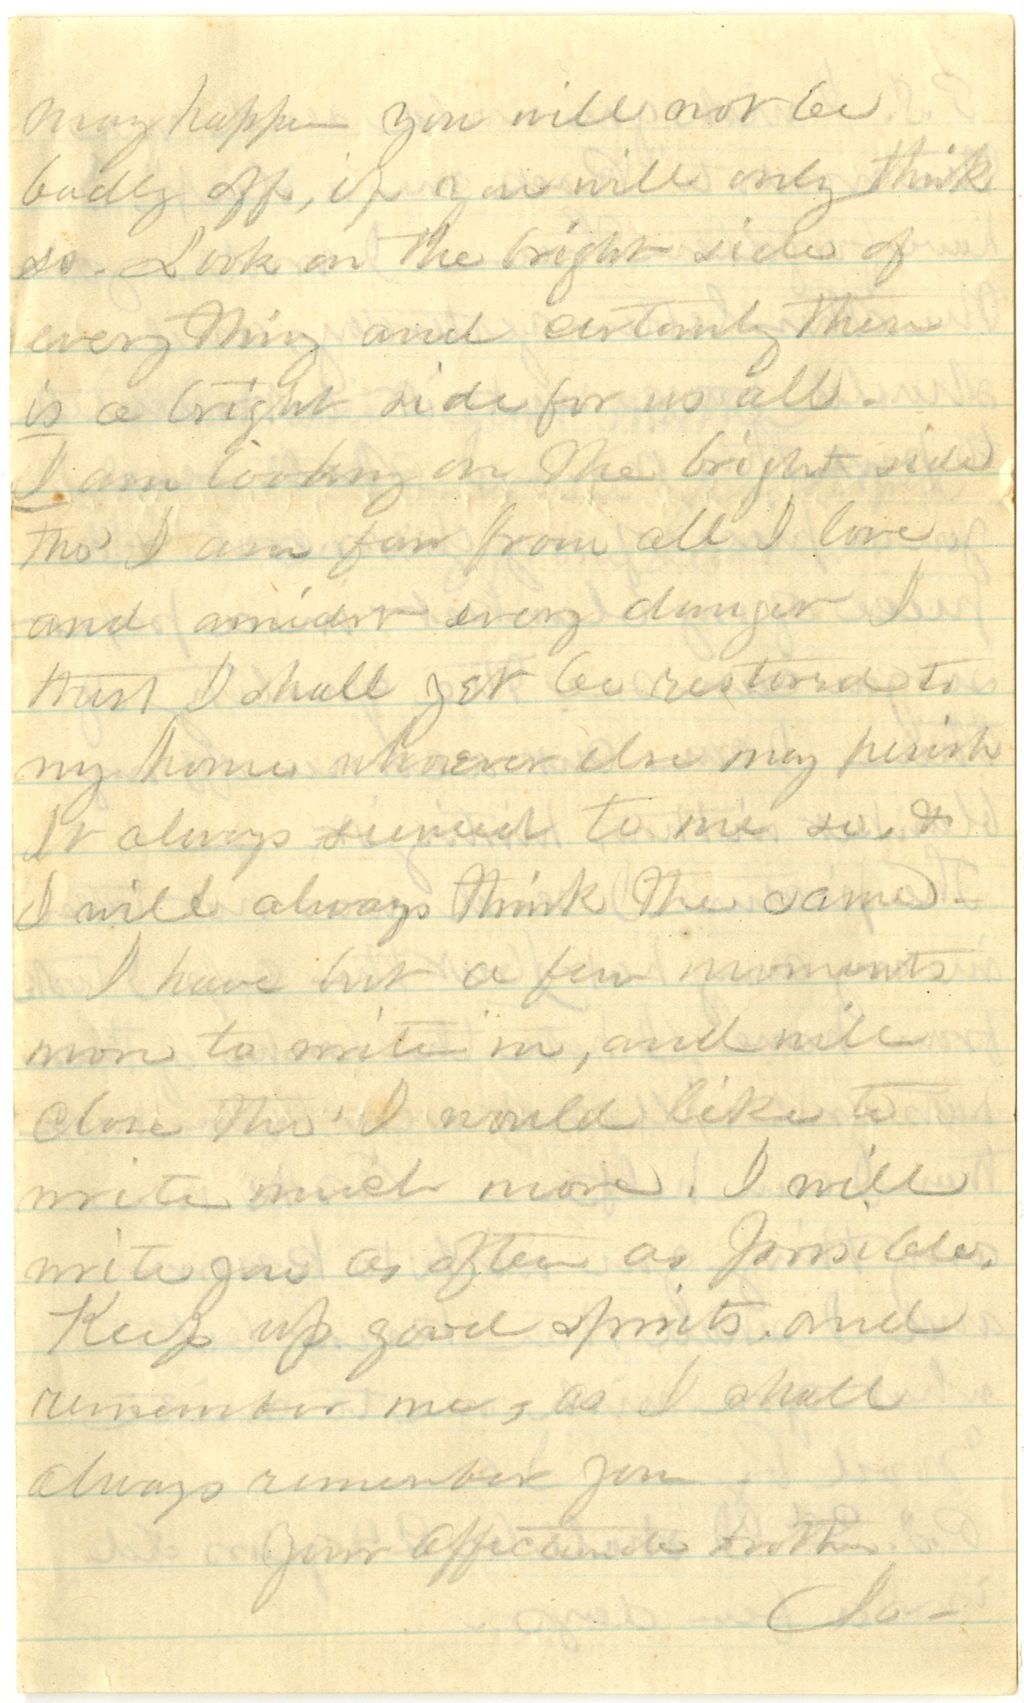 may happen you will not be
badly off, if you will only think
so. Look on the bright side of
everything and certainly there
is a bright side for us all.
I am looking on the bright side
tho' I am far from all I love
and amidst every danger I
trust I shall yet be restored to
my home whoever else may perish
It always seemed to me so, &
I will always think the same -
I have but a few moments
more to write in, and will
close tho' I would like to
write much more. I will
write you as often as possible.
Keep up good spirits. and
remember me, as I shall
always remember you
Your affectionate brother